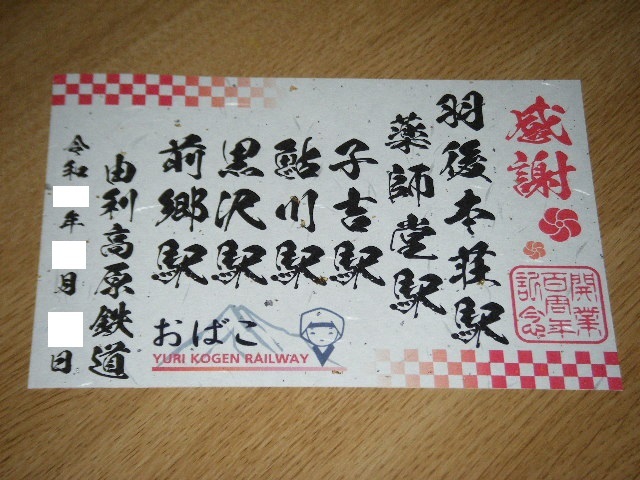 感謝
開業
百周年
記念
羽後本荘駅
薬師堂駅
子吉駅
鮎川駅
黒沢駅
前郷駅
おばこ
YURI KOGEN RAILWAY
由利高原鉄道
令和 年 月 日